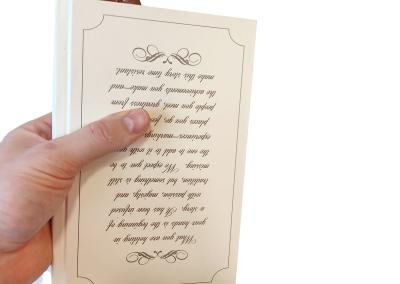 What you are holding in
your hands is the beginning of
a story. It has been infused
with passion, majesty, and
tradition, but something is still
missing. We expect you to be
the one to add to it with
experiences—
places you go,
people you meet, greatness from
the achievements you make—and
make this story time resistant.